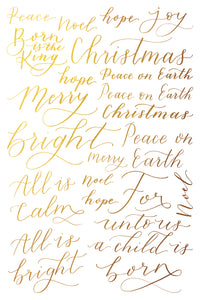 Peace Noel hope joy
Born
is the
King
Christmas
hope Peace on Earth
Merry Peace on Earth
Christmas
bright Peace on
merry Earth
All is noel For Noel
Calm hope
unto us
All is a child is
bright born